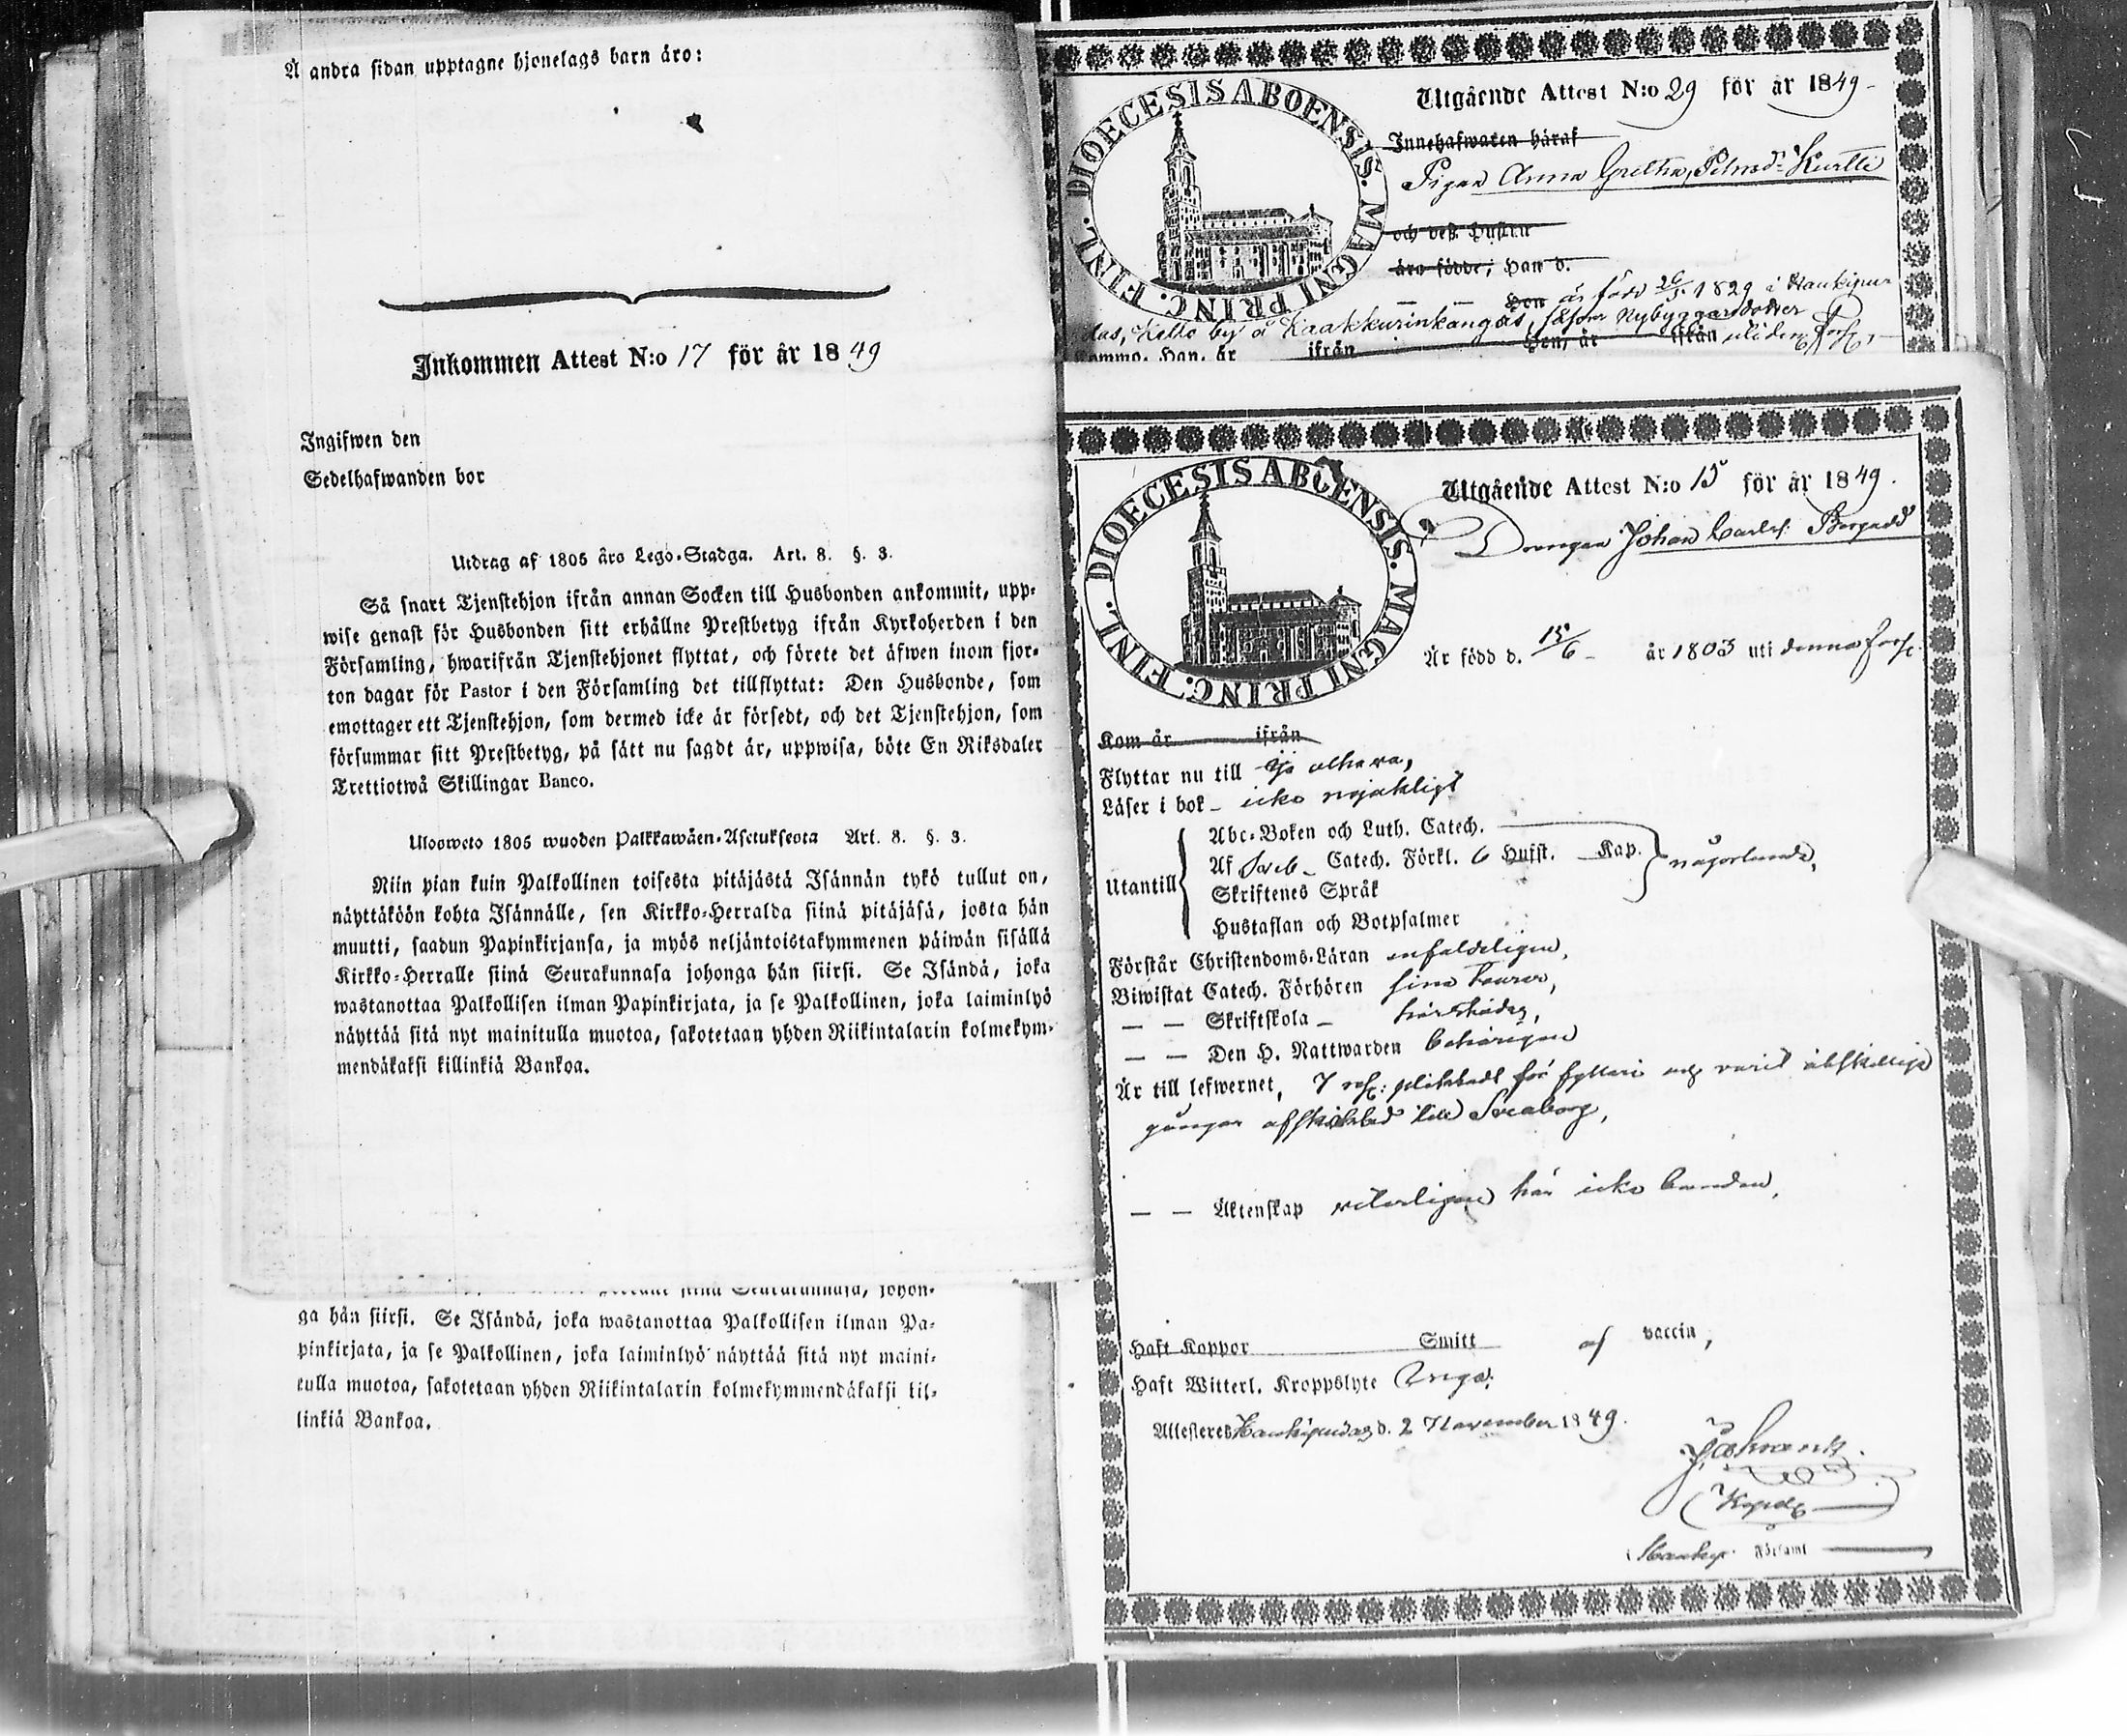 Å andra sidan upptagne hjonelags barn äro:
Inkommen Attest N:o 17 för år 1849
Ingifwen den
Sedelhafwanden bor
Utdrag af 1805 års Lego-Stadga. Art. 8. §. 3.
Så snart Tjenstehjon ifrån annan Socken till Husbonden ankommit, upp-
wise genast för Husbonden sitt erhållne Prestbetyg ifrån Kyrkoherden i den
Församling, hwarifrån Tjenstehjonet flyttat, och förete det äfwen inom fjor-
ton dagar för Pastor i den Församling det tillflyttat: Den Husbonde, som
emottager ett Tjenstehjon, som dermed icke är försedt, och det Tjenstehjon, som
försummar sitt Prestbetyg, på sätt nu sagdt är, uppwisa, böte En Riksdaler
Trettiotwå Skillingar Banco.
Ulosweto 1805 wuoden Palkkawäen-Asetuksesta Art. 8. §. 3.
Niin pian kuin Palkollinen toisesta pitäjästä Isännän tykö tullut on,
näyttäköön kohta Isännälle, sen Kirkko-Herralda siinä pitäjäsä, josta hän
muutti, saadun Papinkirjansa, ja myös neljäntoistakymmenen päiwän sisällä
Kirkko-Herralle siinä Seurakunnasa johonga hän siirsi. Se Isändä, joka
wastanottaa Palkollisen ilman Papinkirjata, ja se Palkollinen, joka laiminlyö
näyttää sitä nyt mainitulla muotoa, sakotetaan yhden Riikintalarin kolmekym-
mendäkaksi killinkiä Bankoa.
ga hän siirsi. Se Isändä, joka wastanottaa Palkollisen ilman Pa-
pinkirjata, ja se Palkollinen, joka laiminlyö näyttää sitä nyt maini-
tulla muotoa, sakotetaan yhden Riikintalarin kolmekymmendäkaksi kil-
linkiä Bankoa.
DIOECESIS ABOENSIS. MAGNI PRINC. FINL.
Utgående Attest N:o 29 för år 1849
Innehafwaren häraf
Pigan Anna Gretha Kurtti
och deß Hustru
äro födde; Han d.
Hon är född 26/5 1829 i Haukipu
das, Kello by å Kaakkurinkangas, Nybyggardotter
komma. Han, år ifrån Hon, år ifrån
DIOECESIS ABOENSIS. MAGNI PRINC. FINL.
Utgående Attest N:o 15 för år 1849.
Drengen Johan Carls: Borgudd
Är född d. 15/6 år 1803 uti denna förs:
Kom år ifrån
Flyttar nu till Ijo olhava,
Läser i bok icke nöjakligt
Utantill
Abc-Boken och Luth. Catech.
Af Sveb Catech. Förkl. 6 Hufst. Kap.
någorlunda,
Skriftenes Språk
Hustaflan och Botpsalmer
Förstår Christendoms-Läran enfaldeligen,
Biwistat Catech. Förhören sina
— — Skriftskola
— — Den H. Nattwarden behörigen
Är till lefwernet, 7 plicktadt för fylleri och varit åtskillige
gångor afskickad till Sveaborg,
— — Äktenskap veterligen här icke bunden,
Haft Koppor Smitt af vaccin,
Haft Witterl. Kroppslyte Inga.
Attesteres Haukipudas d. 2 November 1849.
Församl